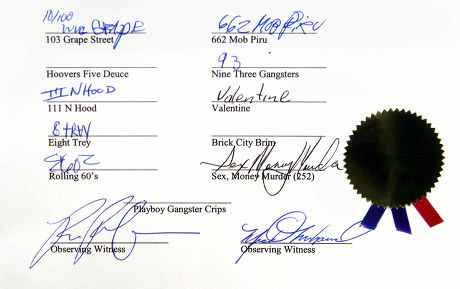 10/100
103 Grape Street
662 MOB PIRU
662 Mob Piru
Hoovers Five Deuce
93
Nine Three Gangsters
III N HOOD
111 N Hood
Valentine
Valentine
8 TREY
Eight Trey
Brick City Brim
Rolling 60's
Sex Money Murda
Sex, Money Murder (252)
Playboy Gangster Crips
Observing Witness
Observing Witness